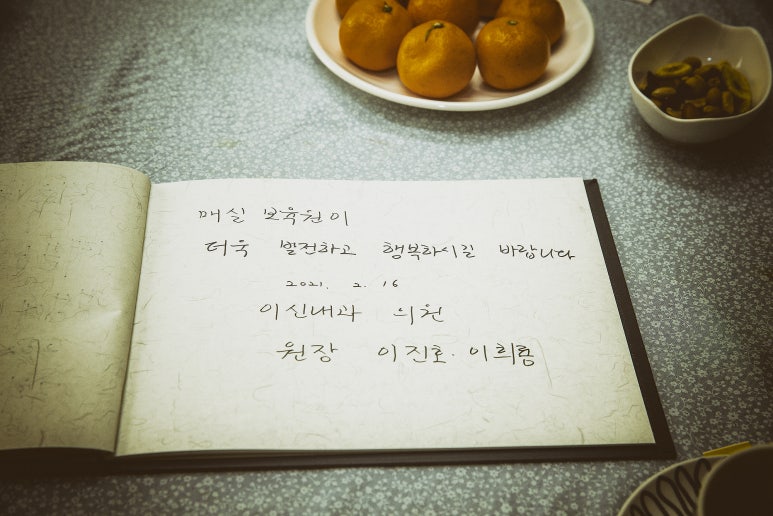 매실 보육원이
더욱 발전하고 행복하시길 바랍니다
2021. 2. 16
이신내과 의원
원장 이진호·이희룡